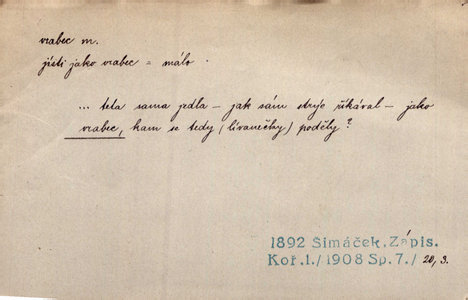 vrabec m.
jísti jako vrabec = málo
... teta sama jedla – jak sám strýc říkával – jako
vrabec, kam se tedy (lívanečky) poděly?
1892 Šimáček. Zápis.
Koř.1./1908 Sp.7./ 20, 3.